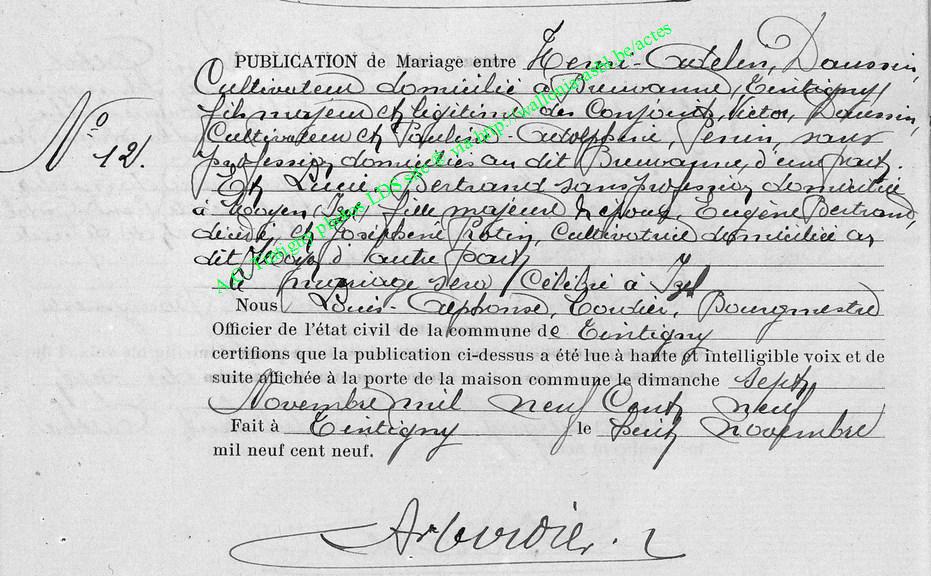 PUBLICATION de Mariage entre Henri-Adelin, Daussin,
Cultivateur domicilié à Breuvanne, Tintigny,
fils majeur et légitime des Conjoints, Victor, Daussin,
Cultivateur et Pauline-Adolphine, sans
profession domiciliés au dit Breuvanne, d'une part.
Et, Lucie, Bertrand sans profession domiciliée
à Moyen, Izel, fille majeure Eugène Bertrand,
décédé, et Joséphine Rotin, Cultivatrice domiciliée au
dit Moyen d'autre part,
Le mariage sera Célébré à Izel
N° 12.
Nous Louis-Alphonse, Cordier, Bourgmestre
Officier de l'état civil de la commune de Tintigny
certifions que la publication ci-dessus a été lue à haute et intelligible voix et de
suite affichée à la porte de la maison commune le dimanche sept
Novembre mil neuf Cent neuf
Fait à Tintigny le huit novembre
mil neuf cent neuf.
A. Cordier
A.C. Tintigny photos LDS site & via http://wallonia.asbl.be/actes